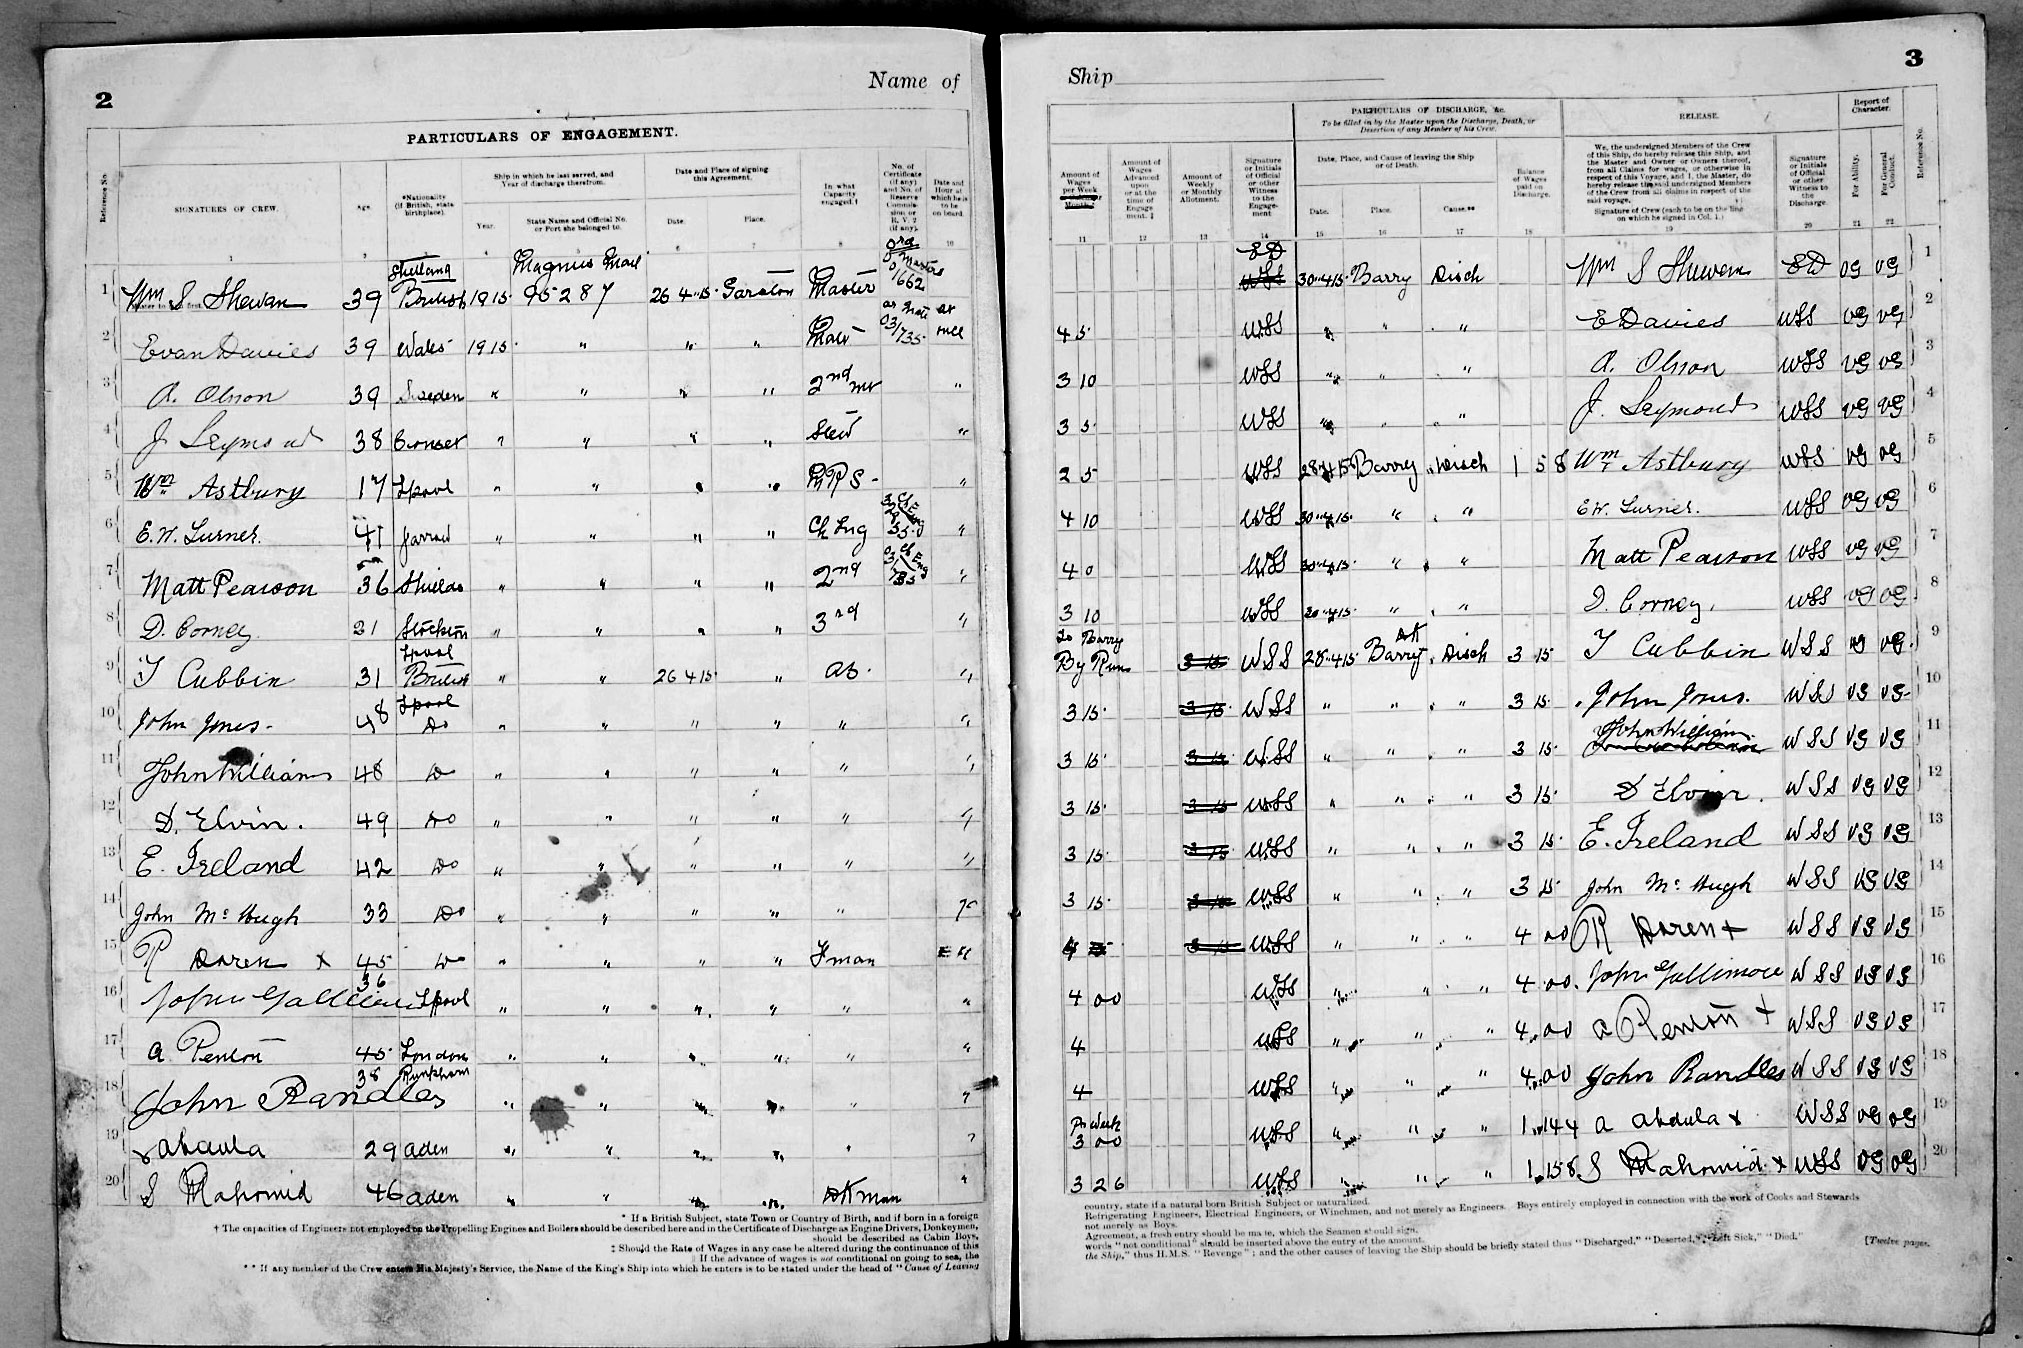 2
Name of
PARTICULARS OF ENGAGEMENT.
Reference No.
SIGNATURES OF CREW.
Age.
*Nationality (if British, state birthplace).
Ship in which he last served, and Year of discharge therefrom.
Year.
State Name and Official No. or Port she belonged to.
Date and Place of signing this Agreement.
Date.
Place.
In what Capacity engaged.†
No. of Certificate (if any) and No. of Reserve Commission or R. V. 2 (if any).
Date and Hour at which he is to be on board.
1 Wm S Shewan 39 Shetland British 1915 Magnus Mail 95287 26 4 15 Garston Master 1662
2 Evan Davies 39 Wales 1915 " " " Mate 03/735
3 A. Olsson 39 Sweden " " " " 2nd "
4 J Seymour 38 " " " " Stew "
5 Wm Astbury 17 Lpool " " " " "
6 E. W. Turner 41 Jarrow " " " " Ch Eng "
7 Matt Pearson 36 Shields " " " " 2nd "
8 D. Corney 21 Stockton " " " " 3rd "
9 T Cubbin 31 Lpool British " " 26 4 15 " AB "
10 John Jones 48 Lpool Do " " " " " "
11 John Williams 48 Do " " " " " "
12 D. Elvin. 49 Do " " " " " "
13 E. Ireland 42 Do " " " " " "
14 John McHugh 33 Do " " " " "
15 R Doren x 45 Do " " " " Fman
16 John Gallimore 36 Lpool " " " " " "
17 A Penton 45 London " " " " " "
18 John Randles 38 " " " " "
19 x Abdula 29 Aden " " " " "
20 S Mahomid 46 Aden " " " " DKman "
* If a British Subject, state Town or Country of Birth, and if born in a foreign
† The capacities of Engineers not employed on the Propelling Engines and Boilers should be described here and in the Certificate of Discharge as Engine Drivers, Donkeymen,
should be described as Cabin Boys,
‡ Should the Rate of Wages in any case be altered during the continuance of this
If the advance of wages is not conditional on going to sea, the
** If any member of the Crew enters His Majesty's Service, the Name of the King's Ship into which he enters is to be stated under the head of "Cause of Leaving
3
Ship
Amount of Wages per Week
Amount of Wages Advanced upon or at the time of Engagement. ‡
Amount of Weekly or Monthly Allotment.
Signature or Initials of Official or other Witness to the Engagement
PARTICULARS OF DISCHARGE, &c.
To be filled in by the Master upon the Discharge, Death, or Desertion of any Member of his Crew.
Date, Place, and Cause of leaving the Ship or of Death.
Date.
Place.
Cause.**
Balance of Wages paid on Discharge.
RELEASE.
We, the undersigned Members of the Crew of this Ship, do hereby release this Ship, and the Master and Owner or Owners thereof, from all Claims for wages, or otherwise in respect of this Voyage, and I, the Master, do hereby release the said undersigned Members of the Crew from all claims in respect of the said voyage.
Signature of Crew (each to be on the line on which he signed in Col. 1.)
Signature or Initials of Official or other Witness to the Discharge.
Report of Character.
For Ability.
For General Conduct.
Reference No.
11 12 13 14 15 16 17 18 19 20 21 22
ED WSS 30 4 15 Barry Disch Wm S Shewan ED VG VG 1
4 5 WSS " " " E Davies WSS VG VG 2
3 10 WSS " " " A. Olsson WSS VG VG 3
3 5 WSS " " " J. Seymour WSS VG VG 4
2 5 WSS 28 4 15 Barry Disch 1 5 8 Wm Astbury WSS VG VG 5
4 10 WSS 30 4 15 " " E W. Turner. WSS VG VG 6
4 0 WSS 30 4 15 " " Matt Pearson WSS VG VG 7
3 10 WSS 30 4 15 " " D. Corney. WSS VG VG 8
To Barry By Run 3 15 WSS 28 4 15 Barry Dk Disch 3 15 T Cubbin WSS VG VG 9
3 15 3 15 WSS " " " 3 15 John Jones. WSS VG VG 10
3 15 3 15 WSS " " " 3 15 John William WSS VG VG 11
3 15 3 15 WSS " " " 3 15 D Elvin. WSS VG VG 12
3 15 3 15 WSS " " " 3 15 E. Ireland WSS VG VG 13
3 15 3 15 WSS " " " 3 15 John McHugh WSS VG VG 14
3 15 WSS " " " 4 00 R Doren + WSS VG VG 15
4 00 WSS " " " 4 00 John Gallimore WSS VG VG 16
4 WSS " " " 4 00 A Penton + WSS VG VG 17
4 WSS " " " 4 00 John Randles WSS VG VG 18
Pr Week 3 00 WSS " " " 1 14 4 A Abdula x WSS VG VG 19
3 2 6 WSS " " " 1 15 8 S Mahomid x WSS VG VG 20
country, state if a natural born British Subject or naturalised.
Refrigerating Engineers, Electrical Engineers, or Winchmen, and not merely as Engineers. Boys entirely employed in connection with the work of Cooks and Stewards
not merely as Boys.
Agreement, a fresh entry should be made, which the Seamen should sign.
words "not conditional" should be inserted above the entry of the amount.
the Ship," thus H.M.S. "Revenge"; and the other causes of leaving the Ship should be briefly stated thus "Discharged," "Deserted," "Left Sick," "Died."
[Twelve pages.